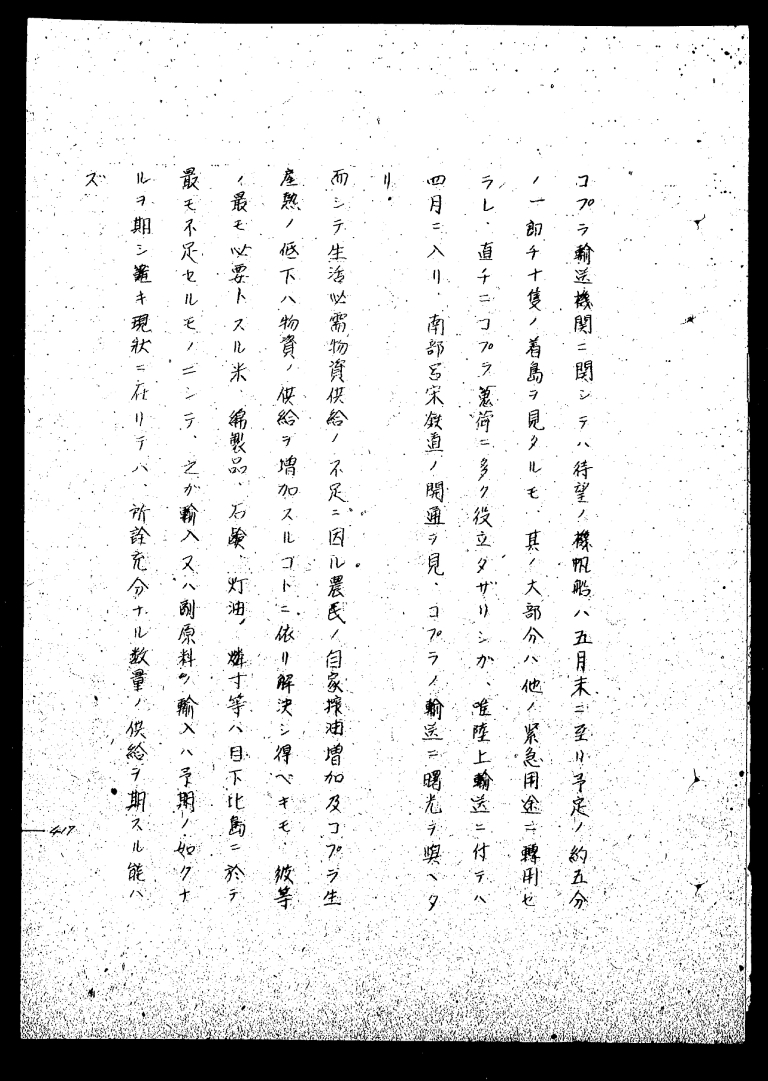 コプラ輸送機関ニ関シテハ待望ノ機帆船ハ五月末ニ至リ予定ノ約五分
ノ一即チ十隻ノ着島ヲ見タルモ、其ノ大部分ハ他ノ緊急用途ニ轉用セ
ラレ、直チニコプラ蒐荷ニ多ク役立タザリシガ、唯陸上輸送ニ付テハ
四月ニ入リ、南部呂宋鉄道ノ開通ヲ見、コプラノ輸送ニ曙光ヲ與ヘタ
リ。
而シテ生活必需物資供給ノ不足ニ因ル農民ノ自家搾油増加及コプラ生
産熱ノ低下ハ物資ノ供給ヲ増加スルコトニ依リ解決シ得ベキモ、彼等
ノ最モ必要トスル米、綿製品、石鹸、灯油、燐寸等ハ目下比島ニ於テ
最モ不足セルモノニシテ、之ガ輸入又ハ副原料ノ輸入ハ予期ノ如クナ
ルヲ期シ難キ現状ニ在リテハ、所詮充分ナル数量ノ供給ヲ期スル能ハ
ズ
417